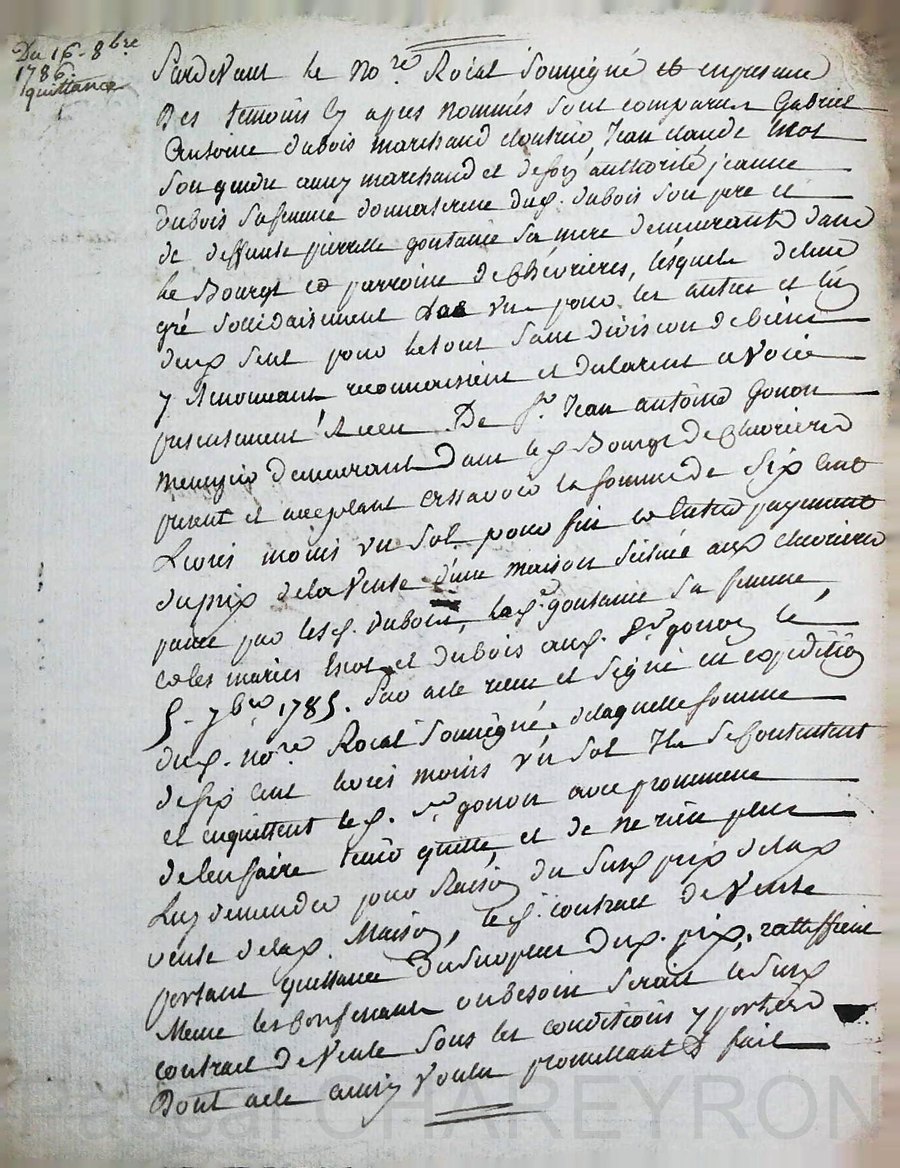 Du 16 - 8bre
1786.
quittance
Pardevant le No.re Roial soussigné et en presance
Des temoins cy apres nommés sont comparus Gabriel
Antoine dubois marchand Jean claude
son gendre aussy marchand et de soy authorité jeanne
dubois sa femme donnataire dud. dubois son pere et
de deffunte pierrette goutanie sa mere demeurants dans
le Bourg et parroisse de Chévrieres, lésquels de leur
gré solidairement l'un pour les autres et un
deux seul pour le tout sans division de biens
y Renonceant reconnoissent et declarent avoir
presentement Receu De sr. Jean antoine Gonon
demeurant dans led. Bourg de chevrieres
present et acceptant assavoir la somme de six cent
Livres moins un sol pour fin et entier payement
du prix de la vente d'une maison scituée aux chevrieres
passée par lesd. dubois, lad. goutanie sa femme
et les mariés et dubois aud. sr. gonon le
5. 7bre 1785. Par acte receu et signé en expédition
dud. no.re Roial soussigné, de laquelle somme
de six cent livres moins un sol Ils se contentent
et enquittent led. sr. gonon avec promesse
de l'en faire tenir quitte, et de ne rien plus
Luy demander pour Raison du susd. prix de lad.
vente de lad. Maison, led. contract de Vente
portant quittance du surplus dud. prix, rattiffient
Meme les confirmant où besoin serait le susd.
contract de Vente sous les conditions y portées
Dont acte ainsy voulu promettant & fait
Pascal CHAREYRON